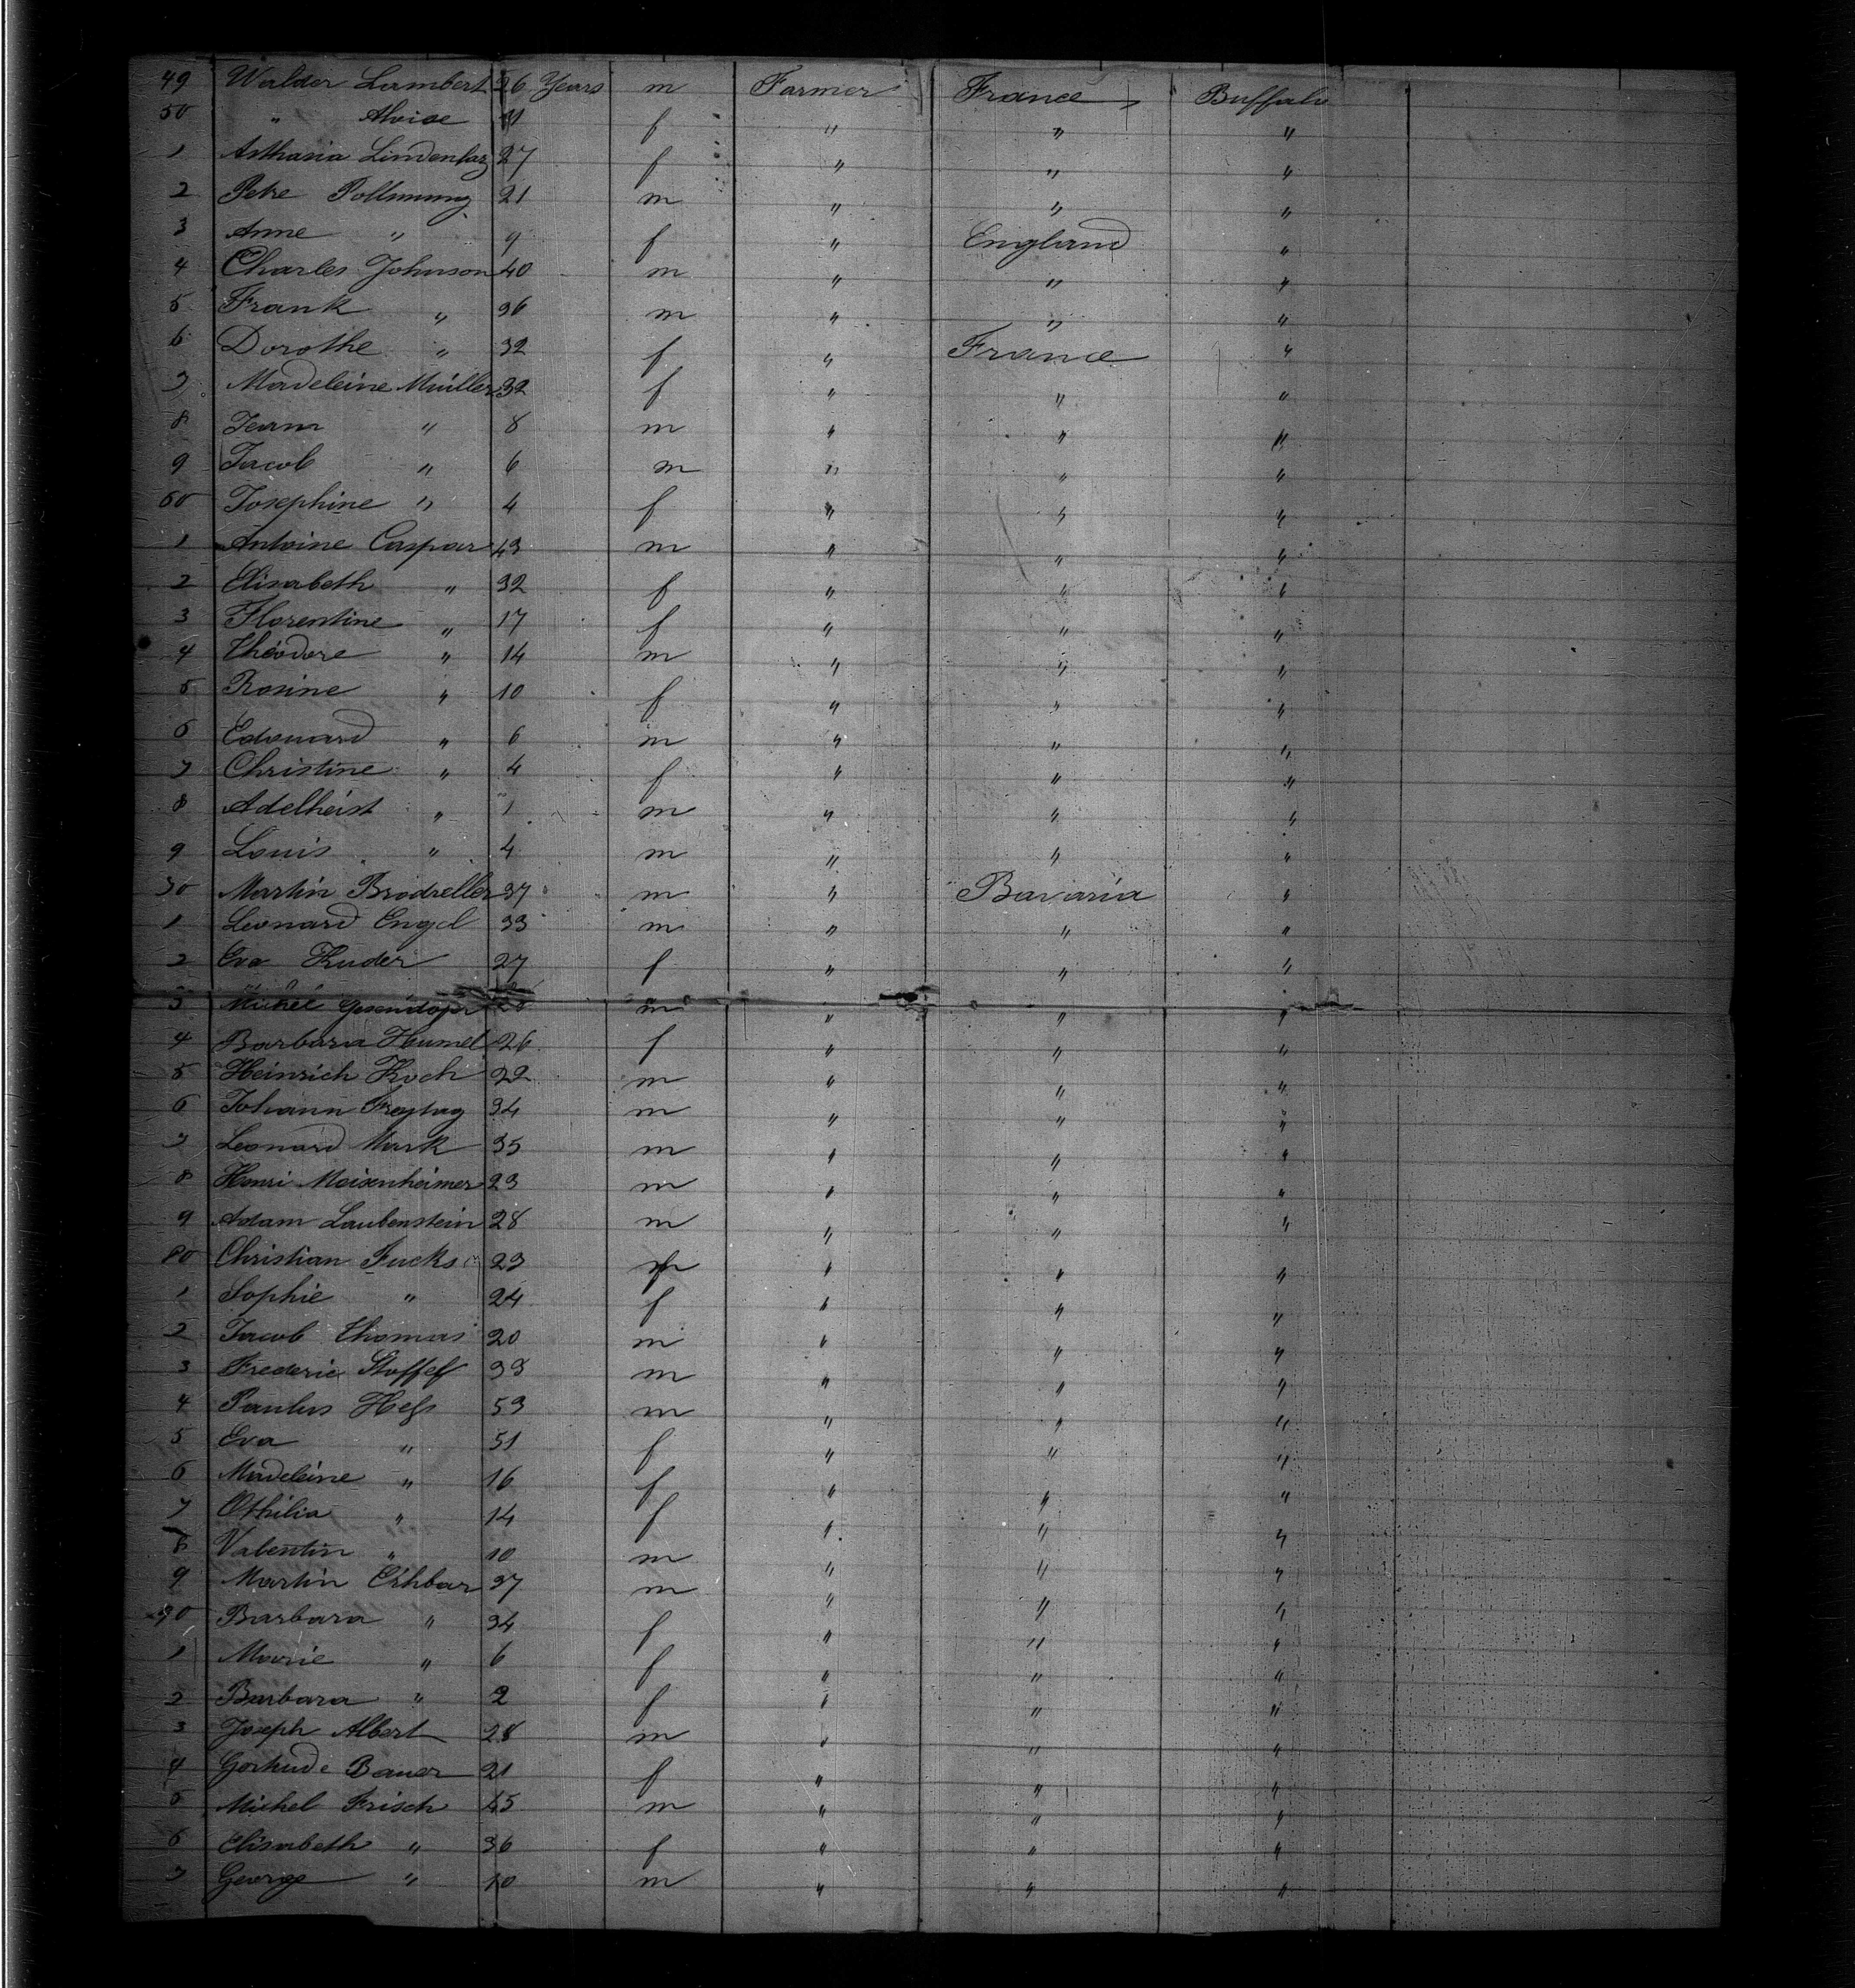 49 Walder Lambert 26 Years m Farmer France Buffalo
50 " Aloise 31 f " " "
1 Asthasia 27 f " " "
2 Petre 21 m " " "
3 Anne " 9 f " England "
4 Charles Johnson 40 m " " "
5 Frank " 36 m " " "
6 Dorothe " 32 f " France "
7 Madeleine Muller 32 f " " "
8 Jeam " 8 m " " "
9 Jacob " 6 m " " "
60 Josephine " 4 f " " "
1 Antoine Caspar 43 m " " "
2 Elisabeth " 32 f " " "
3 Florentine " 17 f " " "
4 Théodore " 14 m " " "
5 Rosine " 10 f " " "
6 Edouard " 6 m " " "
7 Christine " 4 f " " "
8 Adelheist " 1 m " " "
9 Louis " 4 m " " "
70 Martin 37 m " Bavaria "
1 Leonard Engel 33 m " " "
2 Eva Kuder 27 f " " "
3 Michel m " " "
4 Barbara Humel 26 f " " "
5 Heinrich Koch 22 m " " "
6 Johann Freytag 34 m " " "
7 Leonard Mark 35 m " " "
8 Henri Meisenheimer 23 m " " "
9 Adam Laubenstein 28 m " " "
80 Christian Fucks 23 m " " "
1 Sophie " 24 f " " "
2 Jacob Thomas 20 m " " "
3 Frederic Stoffel 33 m " " "
4 Paulus Hess 53 m " " "
5 Eva " 51 f " " "
6 Madeleine " 16 f " " "
7 Othilia " 14 f " " "
8 Valentin " 10 m " " "
9 Martin 37 m " " "
90 Barbara " 34 f " " "
1 Marie " 6 f " " "
2 Barbara " 2 f " " "
3 Joseph Albert 28 m " " "
4 Gertrude Bauer 21 f " " "
5 Michel Frisch 45 m " " "
6 Elisabeth " 36 f " " "
7 George " 10 m " " "